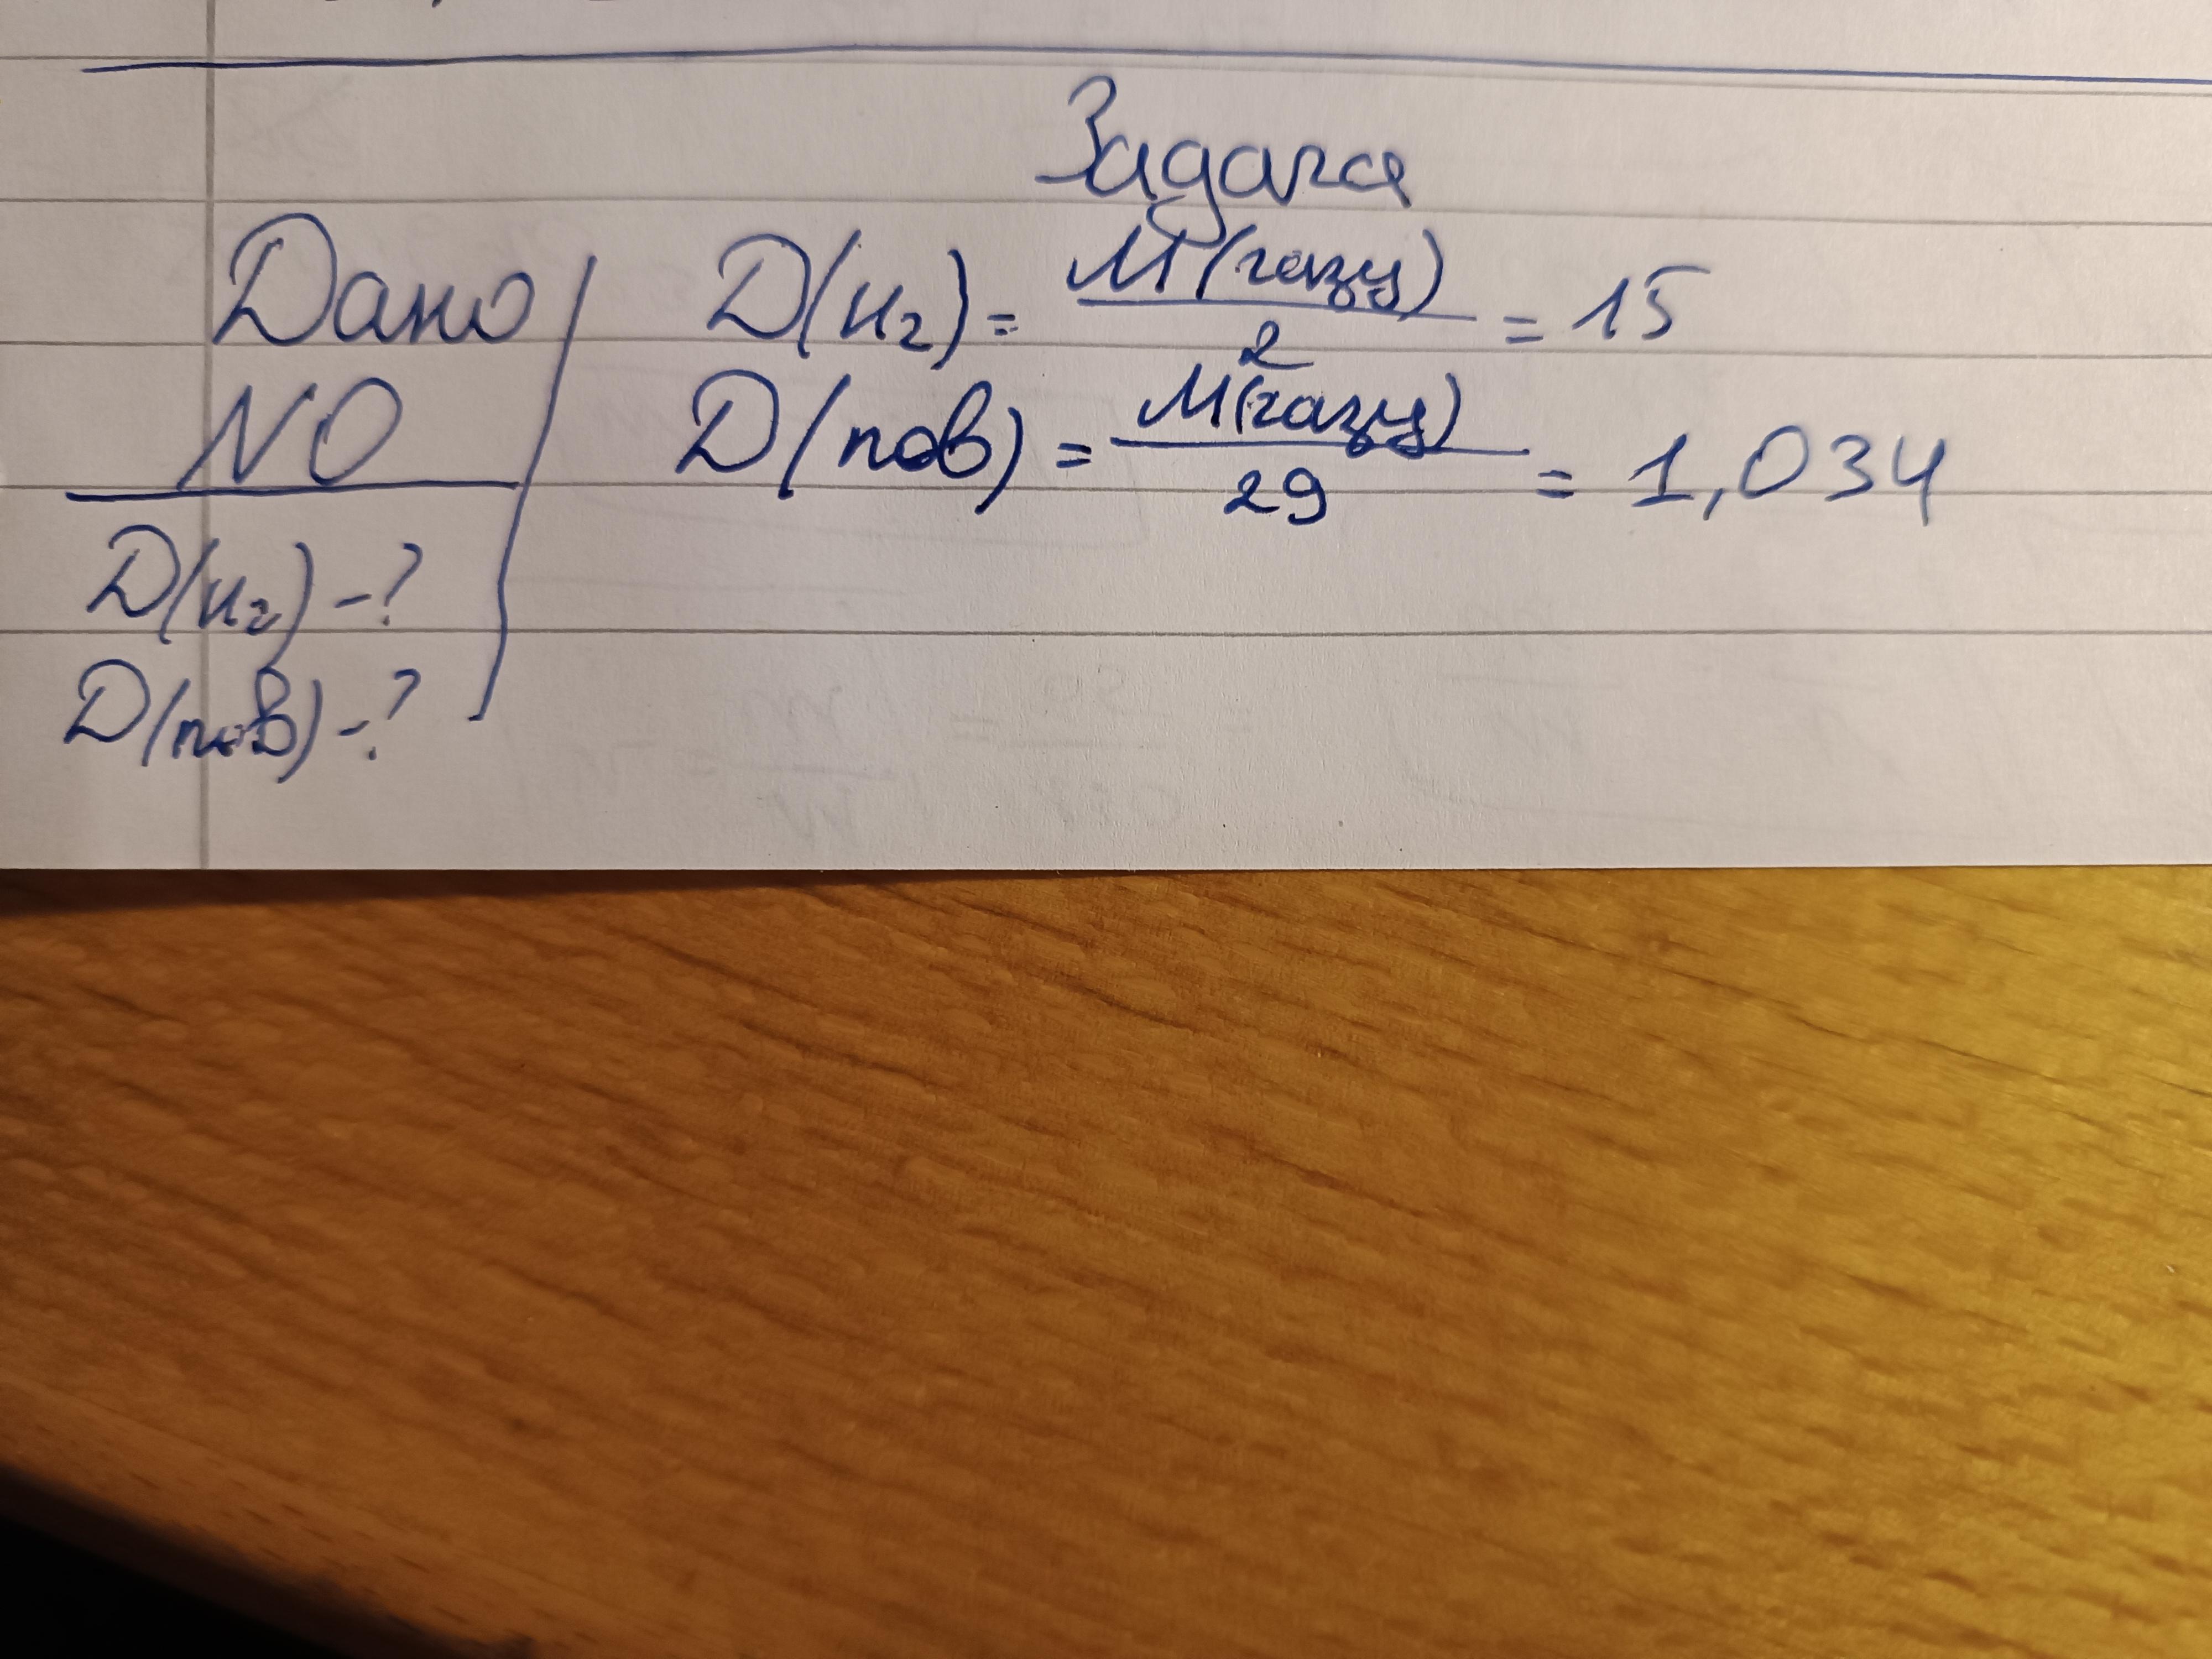 Задача
Дано
NO
D(H2) -?
D(пов) -?
D(H2) = M(газу) / 2 = 15
D(пов) = M(газу) / 29 = 1,034